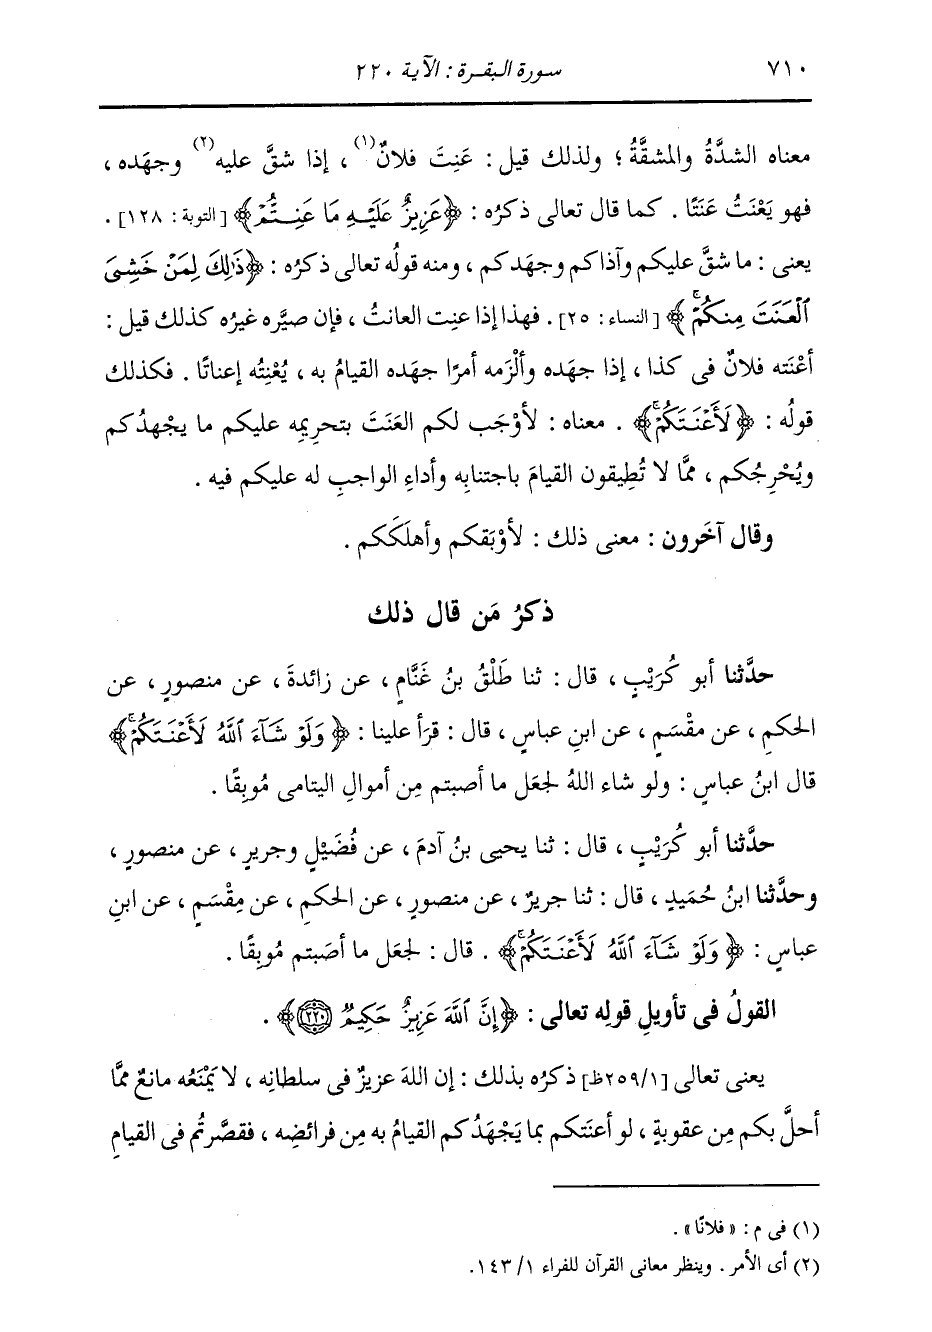 ٧١٠ سورة البقرة : الآية ٢٢٠
معناه الشدَّةُ والمشقَّةُ ؛ ولذلك قيل : عَنِتَ فلانٌ(١) ، إذا شقَّ عليه(٢) وجهَده ،
فهو يَعْنَتُ عَنَتًا . كما قال تعالى ذكرُه : ﴿عَزِيزٌ عَلَيْهِ مَا عَنِتُّمْ﴾ [التوبة : ١٢٨] .
يعنى : ما شقَّ عليكم وآذاكم وجهَدكم ، ومنه قولُه تعالى ذكرُه : ﴿ذَٰلِكَ لِمَنْ خَشِىَ
ٱلْعَنَتَ مِنكُمْ ۚ﴾ [النساء : ٢٥] . فهذا إذا عنِت العانتُ ، فإن صيَّره غيرُه كذلك قيل :
أعْنَته فلانٌ فى كذا ، إذا جهَده وألْزمه أمرًا جهَده القيامُ به ، يُعْنِتُه إعناتًا . فكذلك
قولُه : ﴿لَأَعْنَتَكُمْ ۚ﴾ . معناه : لأوْجَب لكم العَنَتَ بتحريمِه عليكم ما يجْهدُكم
ويُحْرِجُكم ، ممَّا لا تُطِيقون القيامَ باجتنابِه وأداءِ الواجبِ له عليكم فيه .
وقال آخَرون : معنى ذلك : لأوْبَقكم وأهلَكَكم .
ذكرُ مَن قال ذلك
حدَّثنا أبو كُرَيْبٍ ، قال : ثنا طَلْقُ بنُ غَنَّامٍ ، عن زائدةَ ، عن منصورٍ ، عن
الحكمِ ، عن مقْسَمٍ ، عن ابنِ عباسٍ ، قال : قرَأ علينا : ﴿وَلَوْ شَآءَ ٱللَّهُ لَأَعْنَتَكُمْ ۚ﴾
قال ابنُ عباسٍ : ولو شاء اللهُ لجعَل ما أصبتم مِن أموالِ اليتامى مُوبِقًا .
حدَّثنا أبو كُرَيْبٍ ، قال : ثنا يحيى بنُ آدمَ ، عن فُضَيْلٍ وجريرٍ ، عن منصورٍ ،
وحدَّثنا ابنُ حُمَيدٍ ، قال : ثنا جريرٌ ، عن منصورٍ ، عن الحكمِ ، عن مِقْسَمٍ ، عن ابنِ
عباسٍ : ﴿وَلَوْ شَآءَ ٱللَّهُ لَأَعْنَتَكُمْ ۚ﴾ . قال : لجعَل ما أصَبتم مُوبِقًا .
القولُ فى تأويلِ قولِه تعالى : ﴿إِنَّ ٱللَّهَ عَزِيزٌ حَكِيمٌ ﴿٢٢٠﴾﴾ .
يعنى تعالى [٢٥٩/١ظ] ذكرُه بذلك : إن اللهَ عزيزٌ فى سلطانِه ، لا يَمْنَعُه مانعٌ ممَّا
أحلَّ بكم مِن عقوبةٍ ، لو أعنَتكم بما يَجْهَدُكم القيامُ به مِن فرائضِه ، فقصَّرتُم فى القيامِ
(١) فى م : «فلانًا» .
(٢) أى الأمر . وينظر معانى القرآن للفراء ١٤٣/١ .